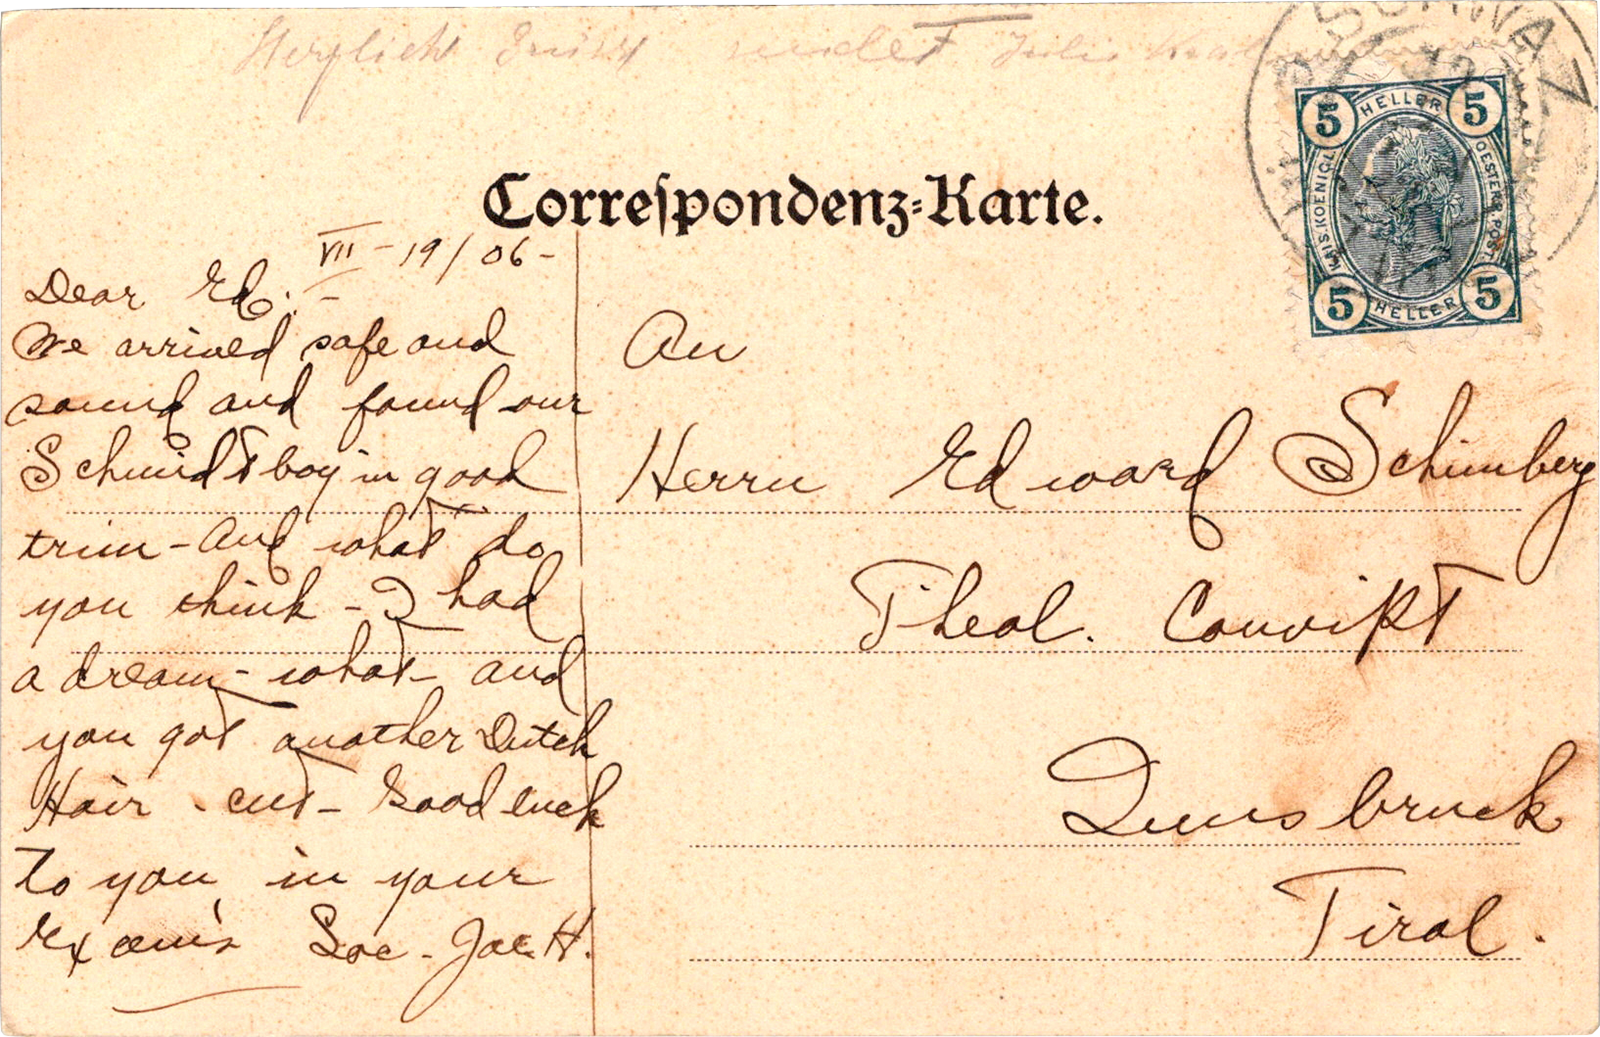 Herzlich Gruss sendet Julie
SCHWAZ
Correspondenz-Karte.
5 HELLER 5
KAIS. KOENIGL. OESTERR. POST.
5 HELLER 5
VII - 19/06 -
Dear Ed. -
We arrived safe and
sound and found our
Schmidt boy in good
trim - and what do
you think - I had
a dream - what - and
you got another Dutch
Hair - cut - Good luck
to you in your
Exam's Soc. Joe H.
An
Herrn Edward Schimberg
Theol. Convikt
Innsbruck
Tirol.